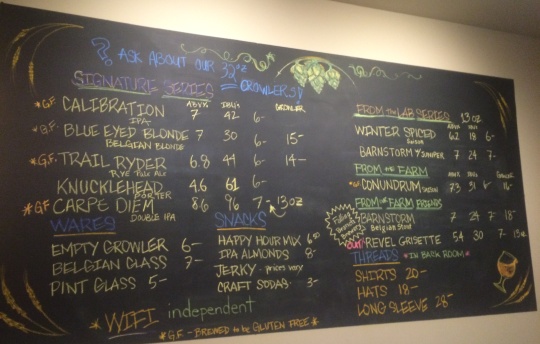 ? ASK ABOUT OUR 32oz
CROWLERS!
SIGNATURE SERIES
ABV% IBUs GROWLER
*GF CALIBRATION 7 42 6-
IPA
*GF BLUE EYED BLONDE 7 30 6- 15-
BELGIAN BLONDE
*GF TRAIL RYDER 6.8 44 6- 14-
RYE PALE ALE
KNUCKLEHEAD 4.6 61 6-
PORTER
*GF CARPE DIEM 8.6 96 7- 13oz
DOUBLE IPA
WARES
EMPTY GROWLER 6-
BELGIAN GLASS 7-
PINT GLASS 5-
SNACKS
HAPPY HOUR MIX
IPA ALMONDS 8-
JERKY - prices vary
CRAFT SODAS 3-
*WIFI independent
*GF - BREWED to be GLUTEN FREE*
FROM the LAB SERIES 13oz
WINTER SPICED 6.2 18 6-
SAISON
BARNSTORM w/JUNIPER 7 24 7-
FROM the FARM
*GF CONUNDRUM SAISON 7.3 31 16-
FROM the FARM FRIENDS
BARNSTORM 7 24 7- 18-
Belgian Stout
OUT! REVEL GRISETTE 5.4 30 7- 13oz
THREADS *IN BACK ROOM*
SHIRTS 20-
HATS 18-
LONG SLEEVE 28-